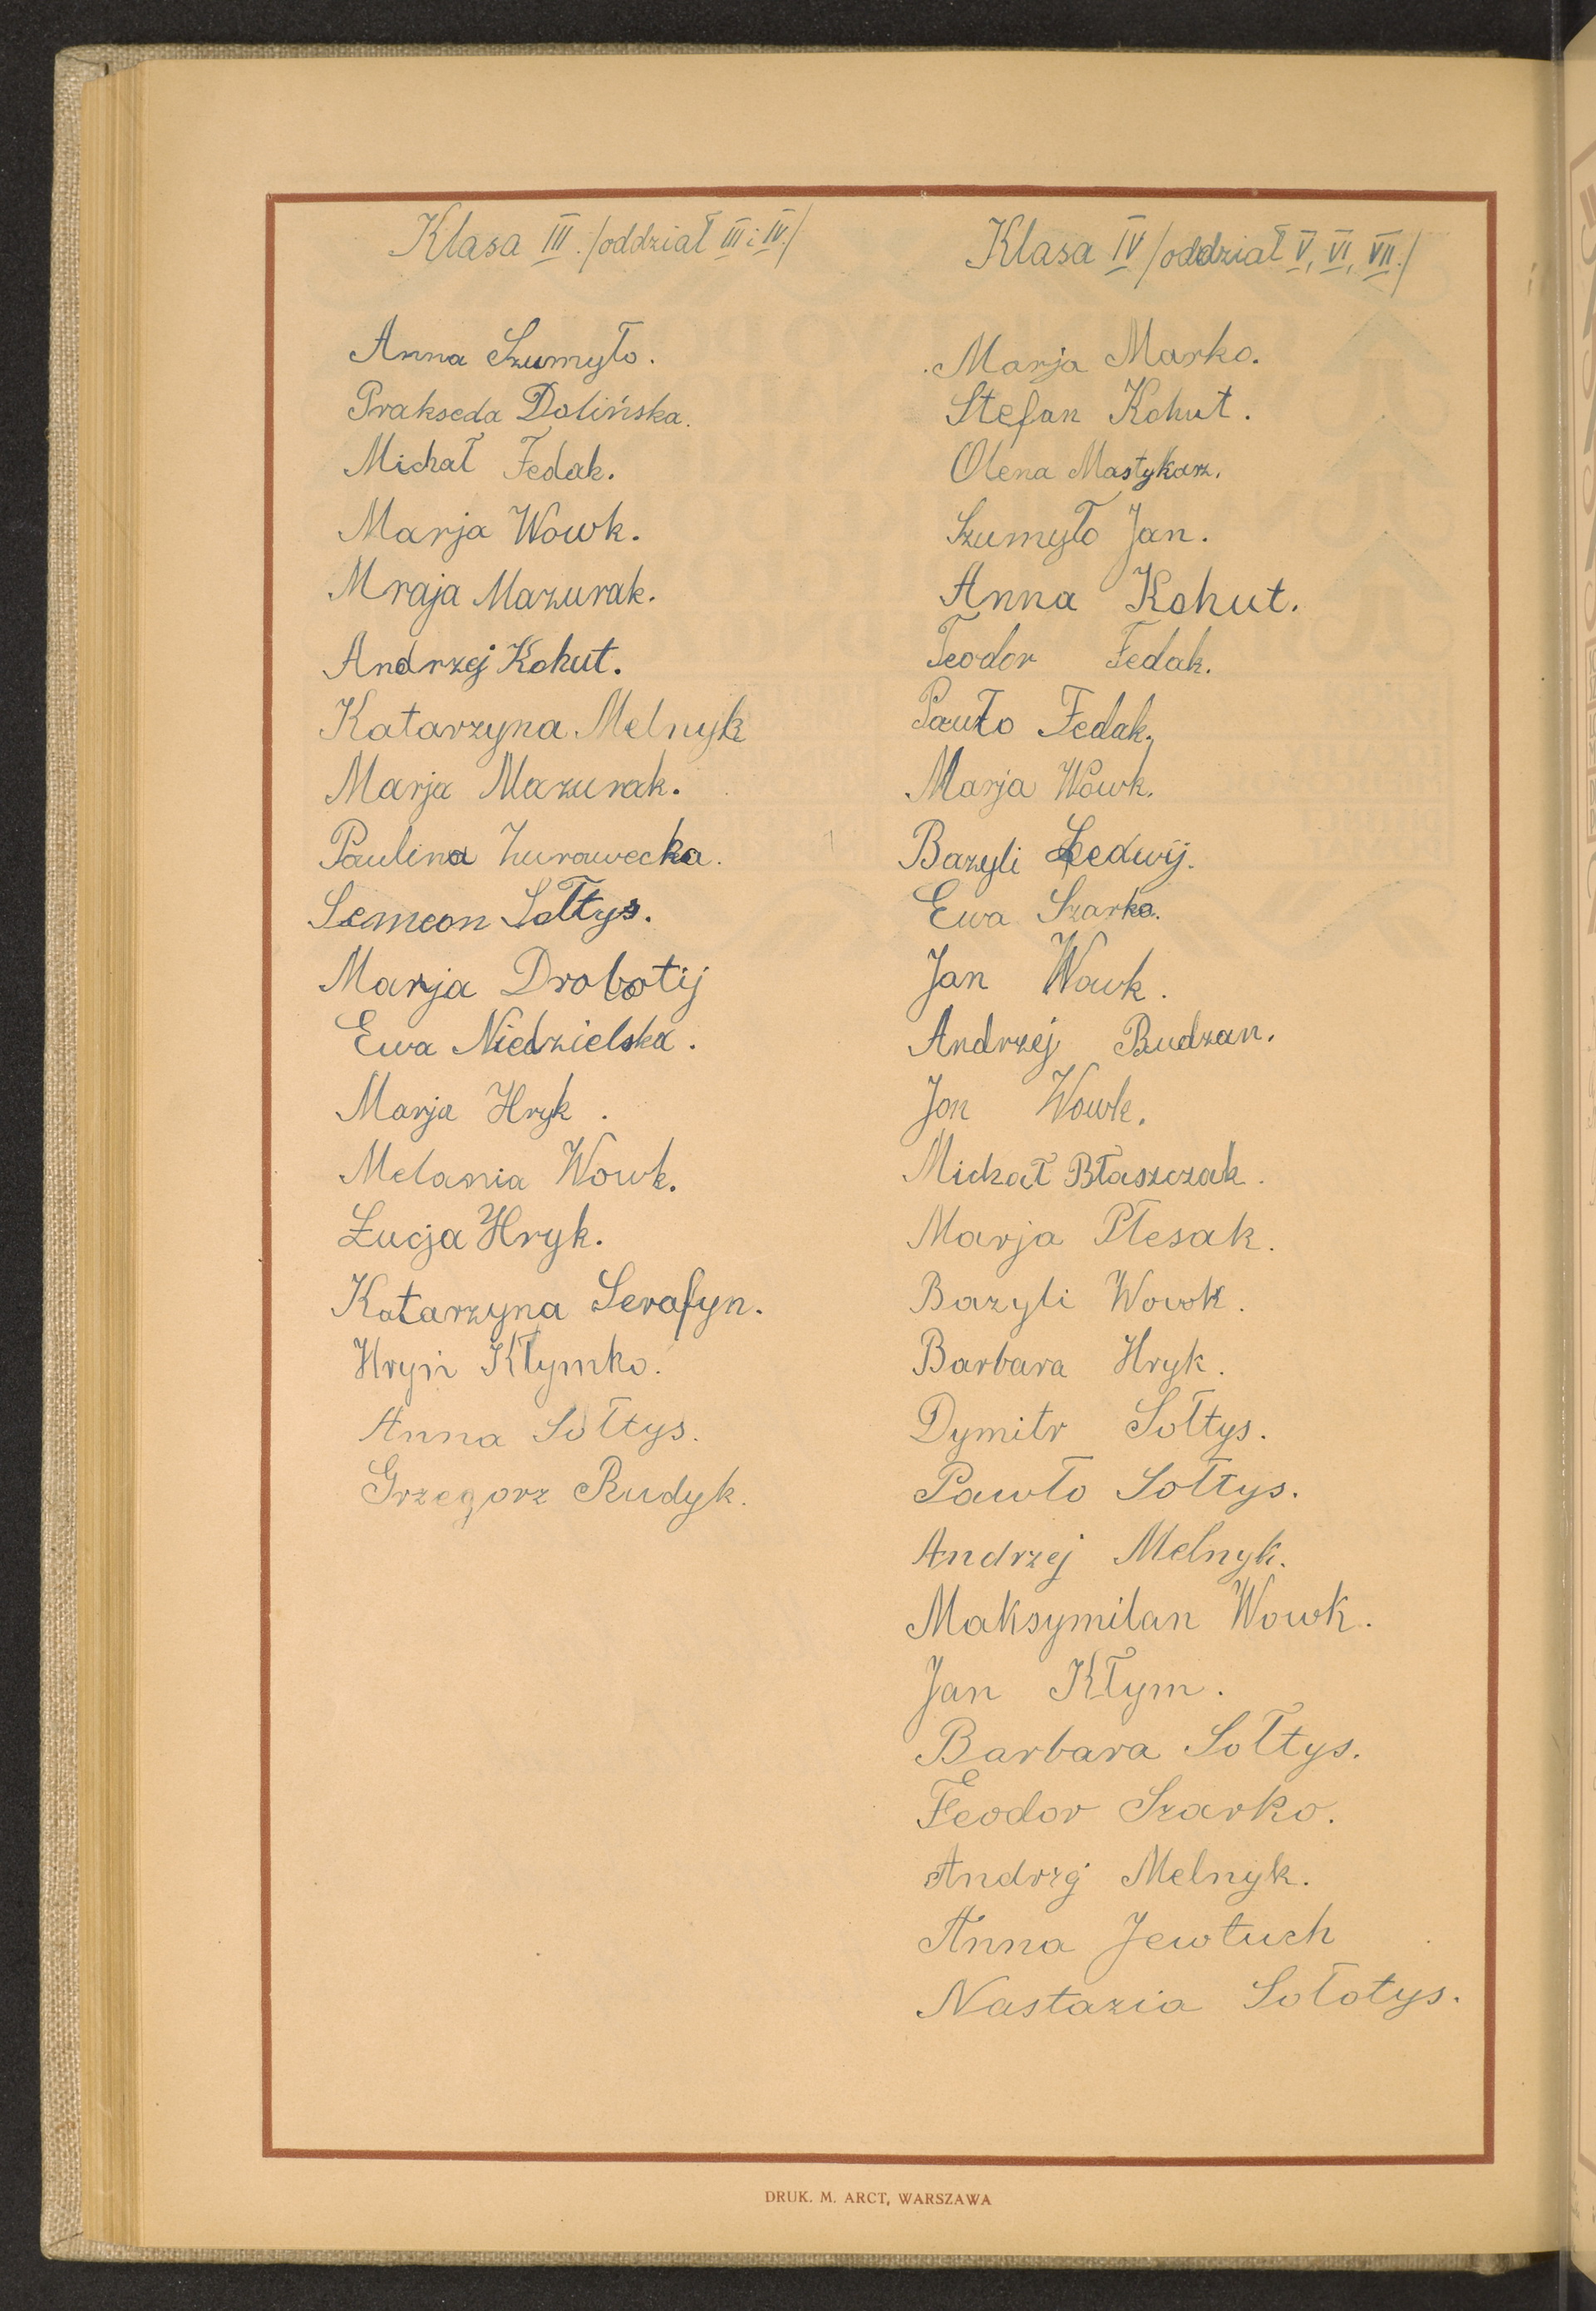 Klasa III. /oddział III i IV./
Anna Szumyło.
Prakseda Dolińska.
Michał Fedak.
Marja Wowk.
Mraja Mazurak.
Andrzej Kohut.
Katarzyna Melnyk
Marja Mazurak.
Paulina Żurawecka.
Semeon Sołtys.
Marja Drobotij
Ewa Niedzielska.
Marja Hryk.
Melania Wowk.
Łucja Hryk.
Katarzyna Serafyn.
Hryń Kłymko.
Anna Sołtys.
Grzegorz Rudyk.
Klasa IV /oddział V, VI, VII./
Marja Marko.
Stefan Kohut.
Olena Mastykarz.
Szumyło Jan.
Anna Kohut.
Teodor Fedak.
Pawło Fedak.
Marja Wowk.
Bazyli Ledwij.
Ewa Szarko.
Jan Wowk.
Andrzej Rudzan.
Jan Wowk.
Michał Błaszczak.
Marja Płesak.
Bazyli Wowk.
Barbara Hryk.
Dymitr Sołtys.
Pawło Sołtys.
Andrzej Melnyk.
Maksymilan Wowk.
Jan Kłym.
Barbara Sołtys.
Feodor Szarko.
Andrzj Melnyk.
Anna Jewtuch
Nastazia Sołotys.
DRUK. M. ARCT, WARSZAWA